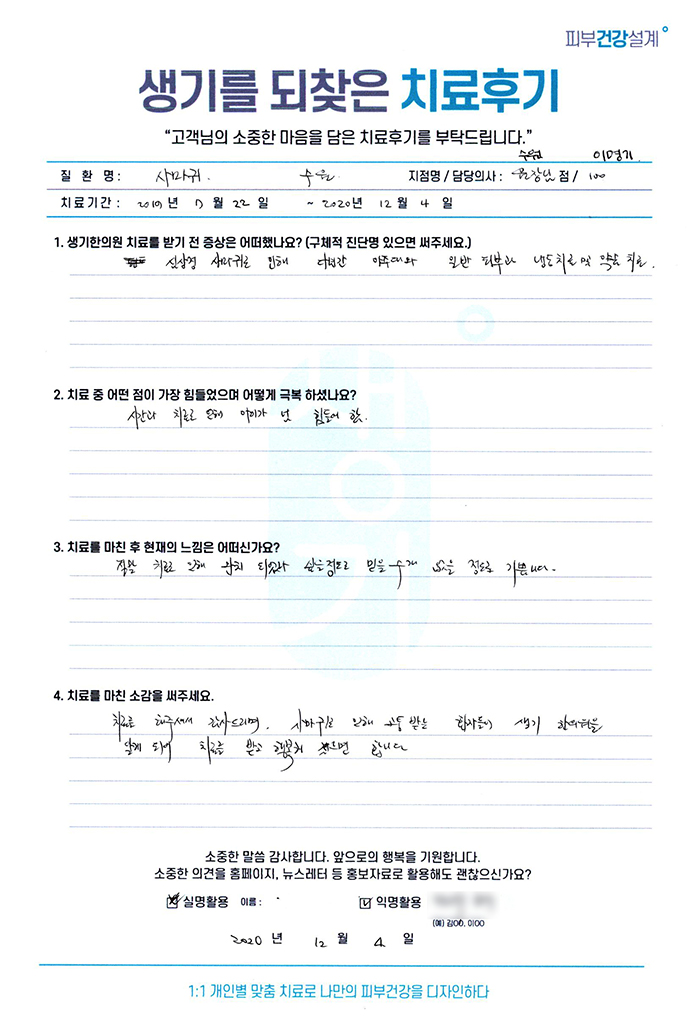 피부건강설계
생기를 되찾은 치료후기
“고객님의 소중한 마음을 담은 치료후기를 부탁드립니다.”
수원 이명기
질 환 명 : 사마귀. 지점명 / 담당의사 : 점 /
치료기간 : 2019년 7월 22일 ~ 2020년 12월 4일
1. 생기한의원 치료를 받기 전 증상은 어떠했나요? (구체적 진단명 있으면 써주세요.)
사마귀로 인해 일반 피부과 냉동치료 및 약물치료.
2. 치료 중 어떤 점이 가장 힘들었으며 어떻게 극복 하셨나요?
시간과 치료로 인해 아이가 힘들어 함.
3. 치료를 마친 후 현재의 느낌은 어떠신가요?
치료로 인해 완치 믿을수가 없을 정도로 기쁩니다.
4. 치료를 마친 소감을 써주세요.
치료를 해주셔서 감사드리며, 사마귀로 인해 고통 받는 환자들이 생기 한의원을
알게 되어 치료를 받고 행복해 졌으면 합니다
생기
소중한 말씀 감사합니다. 앞으로의 행복을 기원합니다.
소중한 의견을 홈페이지, 뉴스레터 등 홍보자료로 활용해도 괜찮으신가요?
실명활용 이름 : 익명활용
(예) 김OO, 이OO
2020 년 12 월 4 일
1:1 개인별 맞춤 치료로 나만의 피부건강을 디자인하다